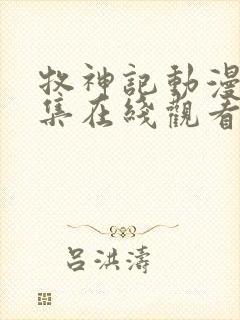 牧神記動漫
集在綫觀看
呂洪濤